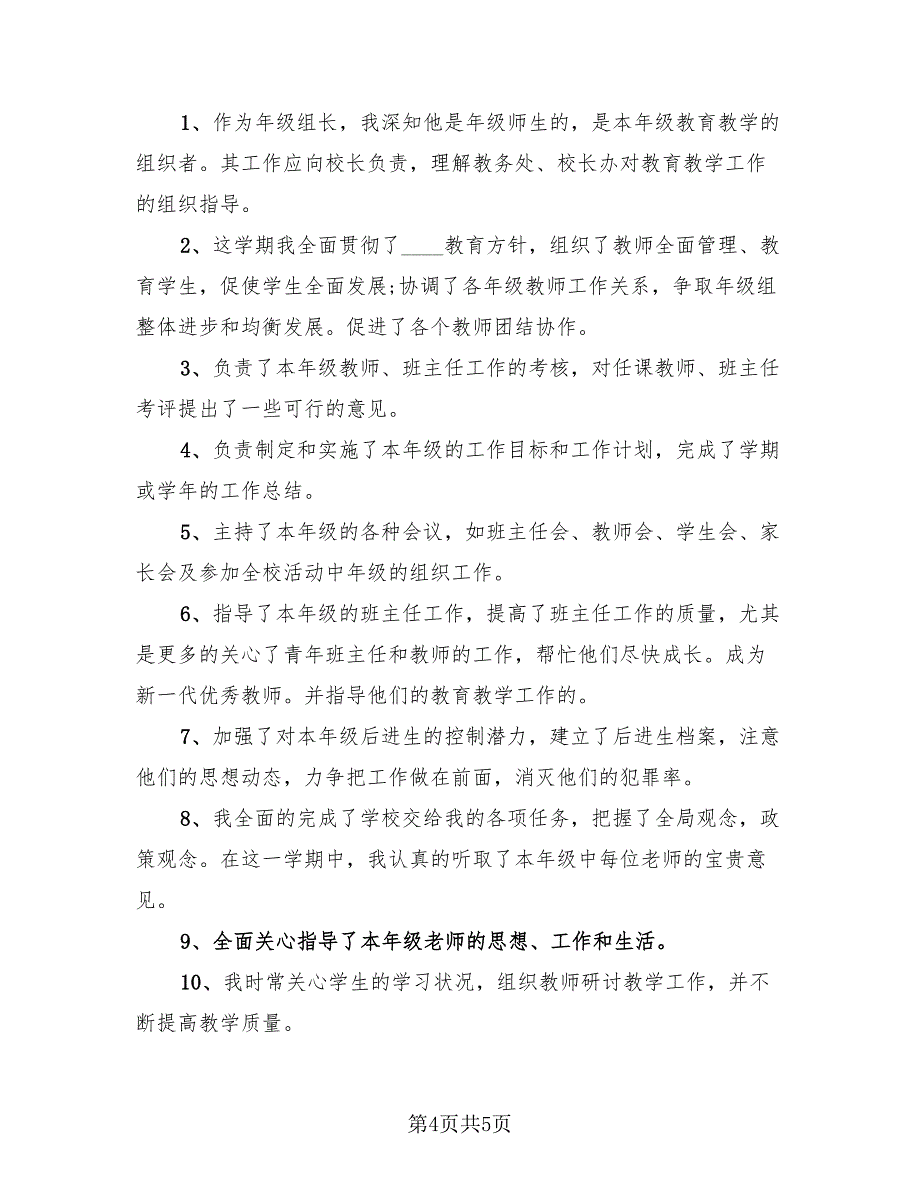 1、作为年级组长，我深知他是年级师生的，是本年级教育教学的
组织者。其工作应向校长负责，理解教务处、校长办对教育教学工作
的组织指导。
2、这学期我全面贯彻了____教育方针，组织了教师全面管理、教
育学生，促使学生全面发展;协调了各年级教师工作关系，争取年级组
整体进步和均衡发展。促进了各个教师团结协作。
3、负责了本年级教师、班主任工作的考核，对任课教师、班主任
考评提出了一些可行的意见。
4、负责制定和实施了本年级的工作目标和工作计划，完成了学期
或学年的工作总结。
5、主持了本年级的各种会议，如班主任会、教师会、学生会、家
长会及参加全校活动中年级的组织工作。
6、指导了本年级的班主任工作，提高了班主任工作的质量，尤其
是更多的关心了青年班主任和教师的工作，帮忙他们尽快成长。成为
新一代优秀教师。并指导他们的教育教学工作的。
7、加强了对本年级后进生的控制潜力，建立了后进生档案，注意
他们的思想动态，力争把工作做在前面，消灭他们的犯罪率。
8、我全面的完成了学校交给我的各项任务，把握了全局观念，政
策观念。在这一学期中，我认真的听取了本年级中每位老师的宝贵意
见。
9、全面关心指导了本年级老师的思想、工作和生活。
10、我时常关心学生的学习状况，组织教师研讨教学工作，并不
断提高教学质量。
第4页共5页